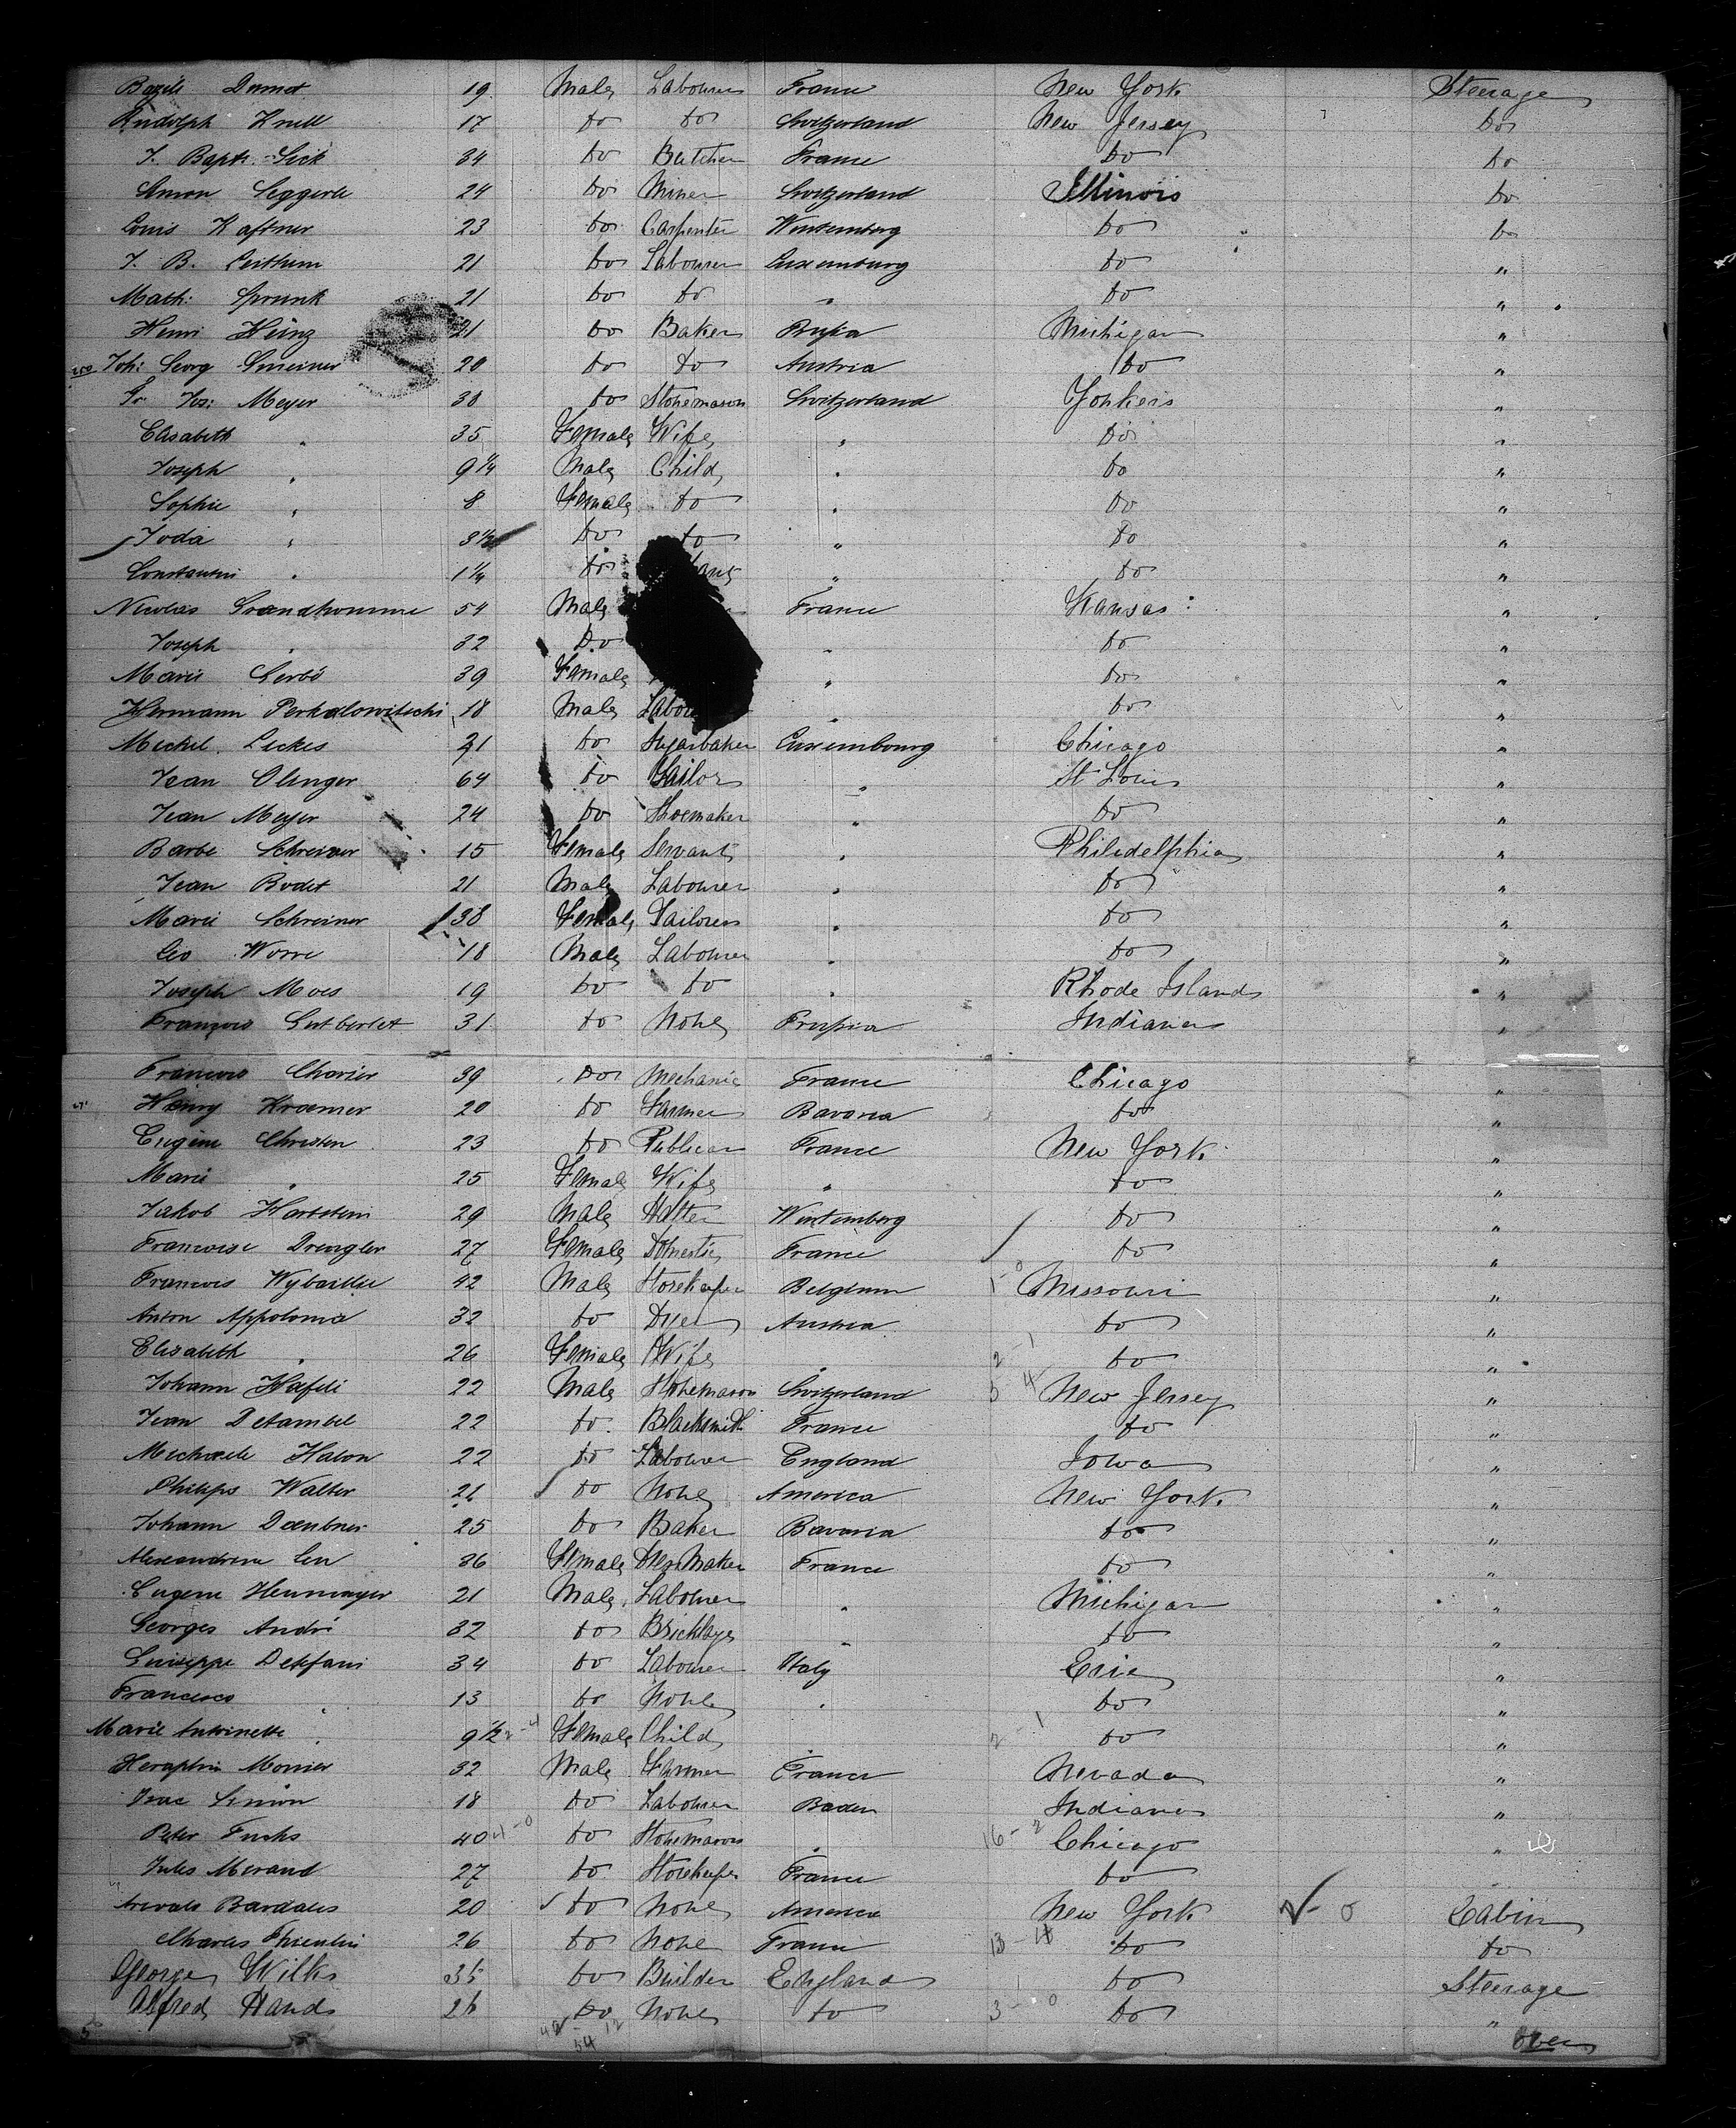 19 Male Labourer France New York Steerage
Rudolph Krull 17 do do Switzerland New Jersey do
J. Bapt. Sick 34 do Butcher France do do
Simon Seggerli 24 do Miner Switzerland Illinois do
Louis Kaftner 23 do Carpenter Wurtemberg do do
J. B. Leithem 21 do Labourer Luxemburg do "
Math: Sprunk 21 do do " do "
Henri Heinz 21 do Baker Michigan "
Joh: Georg 20 do do Austria do "
Fr Jos: Meyer 38 do Stonemason Switzerland Yonkers "
Elisabeth " 35 Female Wife " do "
Joseph " 9 1/4 Male Child " do "
Sophie " 8 Female do " do "
Joda " 3 1/2 do do " do "
Constantin " 1 1/4 do " do "
Nicolas Grandhomme 54 Male France Kansas "
Joseph " 32 do " do "
Marie 39 Female " do "
Hermann Perkalowitschi 18 Male " do "
Michel Leckes 21 do Sugarbaker Luxembourg Chicago "
Jean Olinger 64 do Tailor " St Louis "
Jean Meyer 24 do Shoemaker " do "
Barbe Schreiner 15 Female Servant " Philidelphia "
Jean Bodet 21 Male Labourer " do "
Marie Schreiner 38 Female Tailoress " do "
Leo Worre 18 Male Labourer " do "
Joseph Moes 19 do do " Rhode Island "
François Gutberlet 31 do None Prussia Indiana "
Francois Charier 39 do Mechanic France Chicago "
Henry Kraemer 20 do Farmer Bavaria do "
Eugène Christen 23 do Publican France New York "
Marie " 25 Female Wife " do "
Jakob Hartstein 29 Male Hatter Wurtemberg do "
Francoise Drengler 27 Female Domestic France do "
Francois Wybaillie 42 Male Storekeeper Belgium Missouri "
Anton Appolonia 32 do Austria do "
Elisabeth " 26 Female Wife " do "
Johann Hafeli 22 Male Stonemason Switzerland New Jersey "
Jean Detambel 22 do Blacksmith France do "
Michaele Halon 22 do Labourer England Iowa "
Philipps Walter 21 do None America New York "
Johann Daubner 25 do Baker Bavaria do "
36 Female Dressmaker France do "
Eugene Hennmayer 21 Male Labourer " Michigan "
Georges André 32 do Bricklayer " do "
Guiseppe Destefani 34 do Labourer Italy Erie "
Francesco " 13 do None " do "
Marie Antoinette " 9 1/2 Female Child " do "
Seraphin Monier 32 Male Farmer France Nevada "
Isac Simon 18 do Labourer Baden Indiana "
Peter Fuchs 40 do Stonemason " Chicago "
Jules Morand 27 do Storekeeper France do "
Bardales 20 do None America New York Cabin
Charles 26 do None France do do
George Wilks 35 do Builder England do Steerage
Alfred Hands 26 do None do do "
over